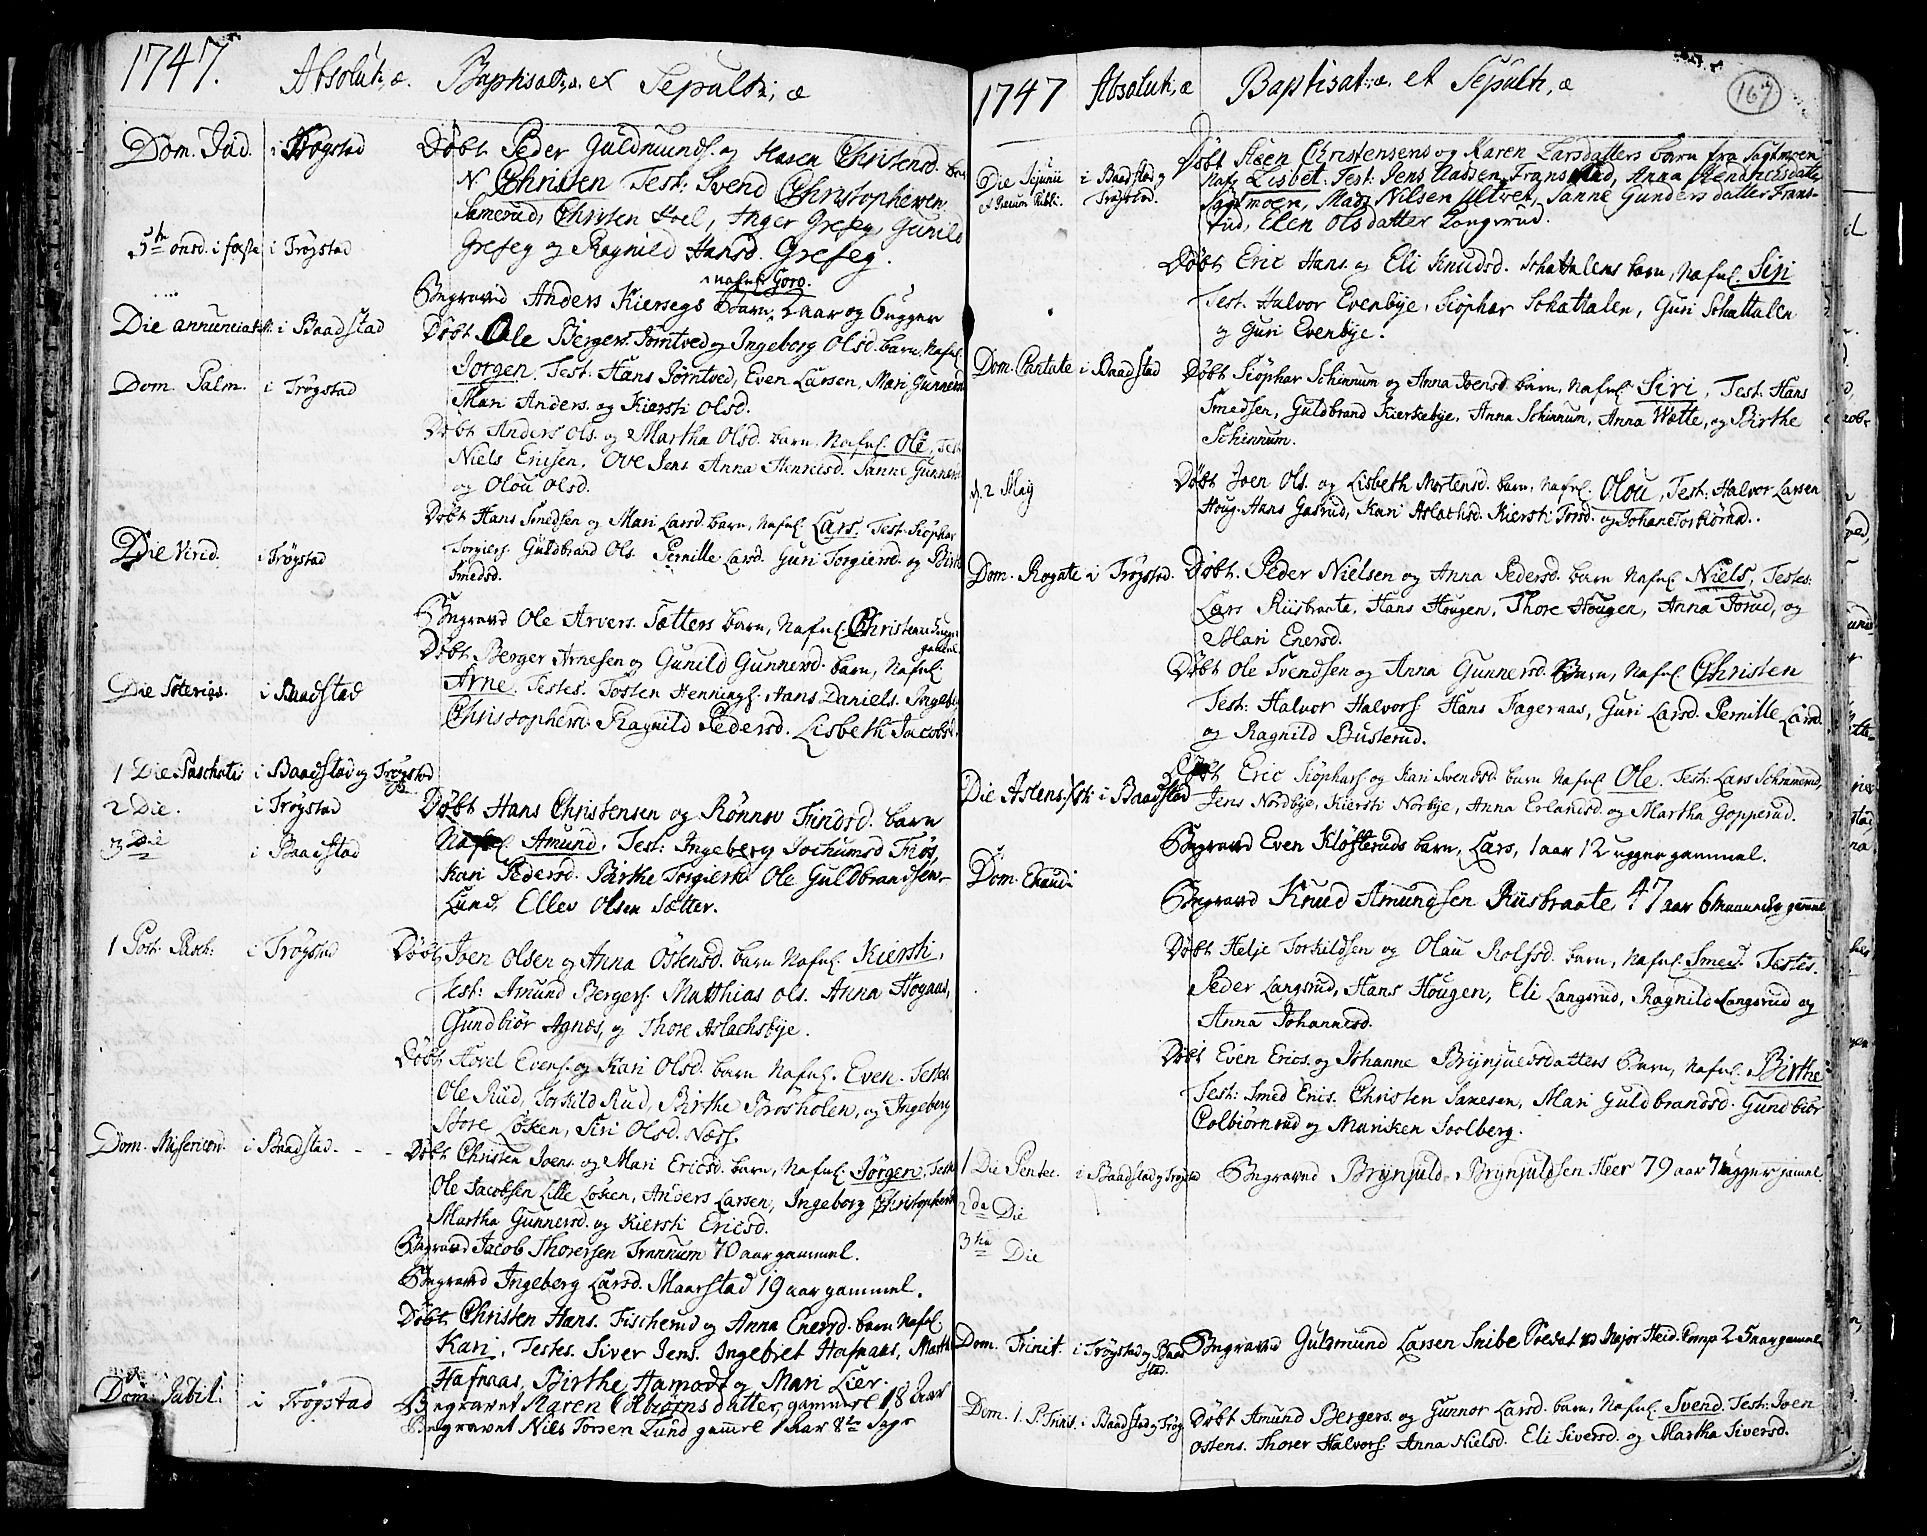 1747. Absolut, æ. Baptisat, æ. et Sepult, æ
Dom. Jud. i Trøgstad Døbt Peder Guldmunds. og Karen Christensd. barn
N. Christen Test: Svend Christophersen
Samerud, Christen Hoel, Inger Grefseg, Gunild
Grefseg og Ragnild Hansd. Grefseg.
5te onsd. i faste i Trøgstad
nafnl. Goro.
Begraved Anders Kiersegs barn, 2 aar og 6 ugger
Die annunciat. i Baadstad Døbt Ole Bergers. Jørntved og Ingeborg Olsd. barn, Nafnl.
Jørgen. Test: Hans Jørntved, Even Larsen, Mari Gunnersd.
Dom. Palm. i Trøgstad
Mari Anders. og Kiersti Olsd.
Døbt Anders Ols. og Martha Olsd. barn. Nafnl. Ole, Test:
Niels Ericsen, Ove Jens Anna Henricsd. Sanne Gunners
og Olou Olsd.
Døbt Hans Smedsen og Mari Larsd. barn, Nafnl. Lars. Test: Siøphar
Torgiers. Guldbrand Ols. Pernille Larsd. Guri Torgiersd. og Birthe
Smedsd.
Die Virid. i Trøgstad
Begraved Ole Arvers. Sætters barn, Nafnl. Christen
Døbt Berger Arnesen og Gunild Gunnersd. barn, Nafnl.
Arne. Testes. Tosten Hennings. Hans Daniels. Ingeb
Die Soterias. i Baadstad
Christophersd. Ragnild Pedersd. Lisbeth Jacobsd.
1 Die Paschatis i Baadstad og Trøgstad
2 Die. i Trøgstad Døbt Hans Christensen og Rønnev Findsd. barn
3 Die i Baadstad
Nafnl. Amund. Test: Ingeberg Jochumsd Trøs
Kari Pedersd. Birthe Torgiersd. Ole Guldbrandsen
Lund, Ellev Olsen Sætter.
1 Post Pasch. i Trøgstad Døbt Joen Olsen og Anna Østensd. barn Nafnl. Kiersti,
Test: Amund Bergers. Matthias Ols. Anna Høgaas,
Gundbiør Agnæs, og Thore Aslachsbye.
Døbt Hovel Evens. og Kari Olsd. barn Nafnl. Even. Testes
Ole Rud, Torkild Rud, Birthe Brosholen, og Ingeberg
Store Løken, Siri Olsd. Næss.
Dom. Misericord. i Baadstad - - Døbt Christen Joens. og Mari Ericsd. barn, Nafnl. Jørgen, Test
Ole Jacobsen Lille Løken, Anders Larsen, Ingeborg Christophersd
Martha Gunnersd. og Kiersti Ericsd.
Begraved Jacob Thoresen Trannum 70 aar gammel.
Begraved Ingeberg Larsd. Maarstad 19 aar gammel.
Døbt Christen Hans. Fischerud og Anna Enersd. barn Nafnl
Kari, Testes. Siver Jens. Ingebret Hafnaas, Marthe
Hafnaas, Birthe Hamodt og Mari Lier.
Dom. Jubil. i Trøgstad Begravet Maren Colbiørnsdatter, gammel 18 Aar
Begravet Niels Torsen Lund gamel 1 Aar 8te Dage
167
1747 Absolut, æ Baptisat, æ. et Sepult, æ
Die Jejunii i Baadstad og Trøgstad. Døbt Steen Christensens og Karen Larsdatters barn fra Sagtmoen
Nafn Lisbet. Test: Jens Madsen Fransrud, Anna Hendricsdatter
Sagtmoen, Mads Nilsen Ultven, Sanne Gundersdatter Frans-
rud, Elen Olsdatter Langsrud.
Døbt Eric Hans. og Eli Knudsd. Schattalens barn, Nafnl. Siri
Test. Halvor Evenbye, Siøphar Schattalen, Guri Schattalen
og Guri Evenbye.
Dom. Cantate i Baadstad Døbt Siøphar Schinnum og Anna Joensd. barn, Nafnl. Siri, Test: Hans
Smedsen, Guldbrand Kierkebye, Anna Schinnum, Anna Wætte, og Birthe
Schinnum.
d. 2 Maj Døbt Joen Ols. og Lisbeth Mortensd. barn, Nafnl. Olou, Test: Halvor Larsen
Houg. Hans Gasrud, Kari Aslachsd. Kiersti Torsd. og Johane Tosbiørnsd..
Dom. Rogate i Trøgstad. Døbt. Peder Nielsen og Anna Pedersd. barn Nafnl. Niels, Testes:
Lars Riisbraate, Hans Hougen, Thore Hougen, Anna Torud, og
Mari Enersd.
Døbt Ole Svendsen og Anna Gunnersd. barn, Nafnl. Christen
Test: Halvor Halvors. Hans Fageraas, Guri Larsd. Pernille Larsd.
og Ragnild Busterud.
Die Ascens. Xsti i Baadstad Døbt Eric Siøphars. og Kari Svendsd. barn Nafnl. Ole. Test: Lars Schinnerud,
Jens Nordbye, Kiersti Norbye, Anna Erlandsd. og Martha Gopperud.
Begraved Even Kløsteruds barn, Lars, 1 aar 12 ugger gammel.
Dom. Exaudi
Begraved Knud Amundsen Riisbraate 47 aar 6 gammel
Døbt Helje Torkildsen og Olau Rolfsd. barn, Nafnl. Smed. Testes.
Peder Langsrud, Hans Hougen, Eli Langsrud, Ragnild Langsrud og
Anna Johannesd.
Døbt Even Erics. og Johanne Brynjuldsdatters Barn, Nafnl. Birthe
Test: Smed Erics. Christen Saxesen, Mari Guldbrandsd. Gundbiør
Colbiørnrud og Mariken Soolberg.
1 Die Pentec. i Baadstad og Trøgstad Begraved Brynjuld Brynjuldsen Heer 79 aar 7 ugger gammel
2da Die
3tia Die
Dom. Trinit. i Trøgstad og Baadstad. Begraved Guldmund Larsen Snibe Soldat ved Major Heid. Comp 25 aar gammel
Dom. 1. P. Trinit. i Baadstad og Trøg Døbt Amund Bergers. og Gunnor Larsd. barn, Nafnl. Svend. Test: Joen
Ostens. Thorer Halvors. Anna Nielsd. Eli Siversd. og Martha Siversd.